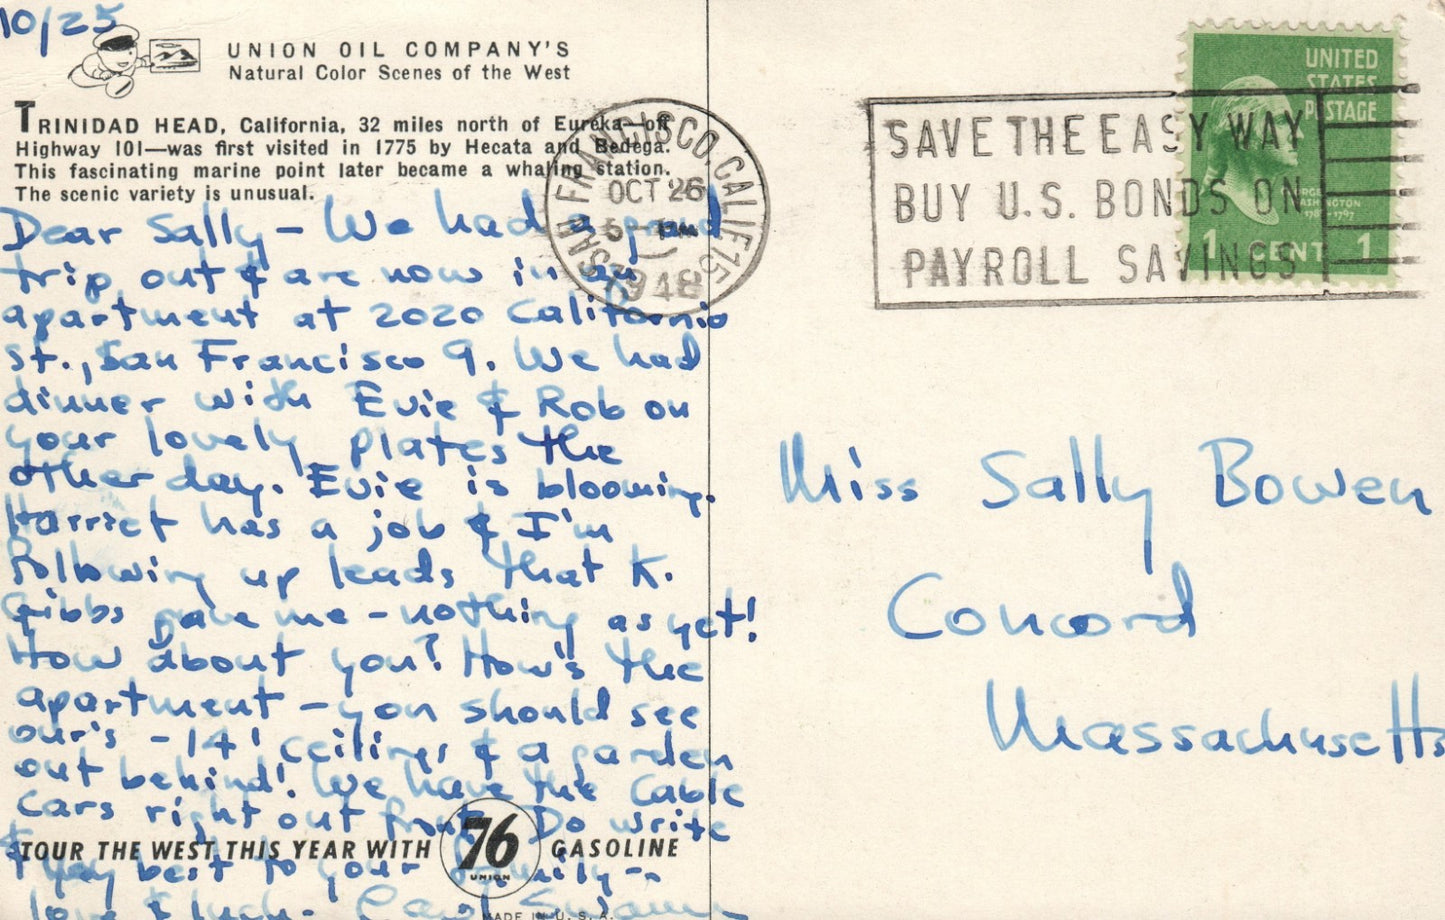 10/25
UNION OIL COMPANY'S
Natural Color Scenes of the West
TRINIDAD HEAD, California, 32 miles north of Eureka—off
Highway 101—was first visited in 1775 by Hecata and Bedega.
This fascinating marine point later became a whaling station.
The scenic variety is unusual.
Dear Sally - We had a grand
trip out & are now in an
apartment at 2020 California
St., San Francisco 9. We had
dinner with Evie & Rob on
your lovely plates the
other day. Evie is blooming.
Harriet has a job & I'm
following up leads that K.
Gibbs gave me - nothing as yet!
How about you? How's the
apartment - you should see
our's - 14' ceilings & a garden
out behind! We have the Cable
Cars right out front. Do write
& my best to your family --
love & luck - Carol
TOUR THE WEST THIS YEAR WITH 76 GASOLINE
UNION
MADE IN U.S.A.
SAN FRANCISCO, CALIF 15
OCT 26
5 - PM
1948
SAVE THE EASY WAY
BUY U.S. BONDS ON
PAYROLL SAVINGS
UNITED
STATES
POSTAGE
GEORGE
WASHINGTON
1789-1797
1 CENT 1
Miss Sally Bowen
Concord
Massachusetts